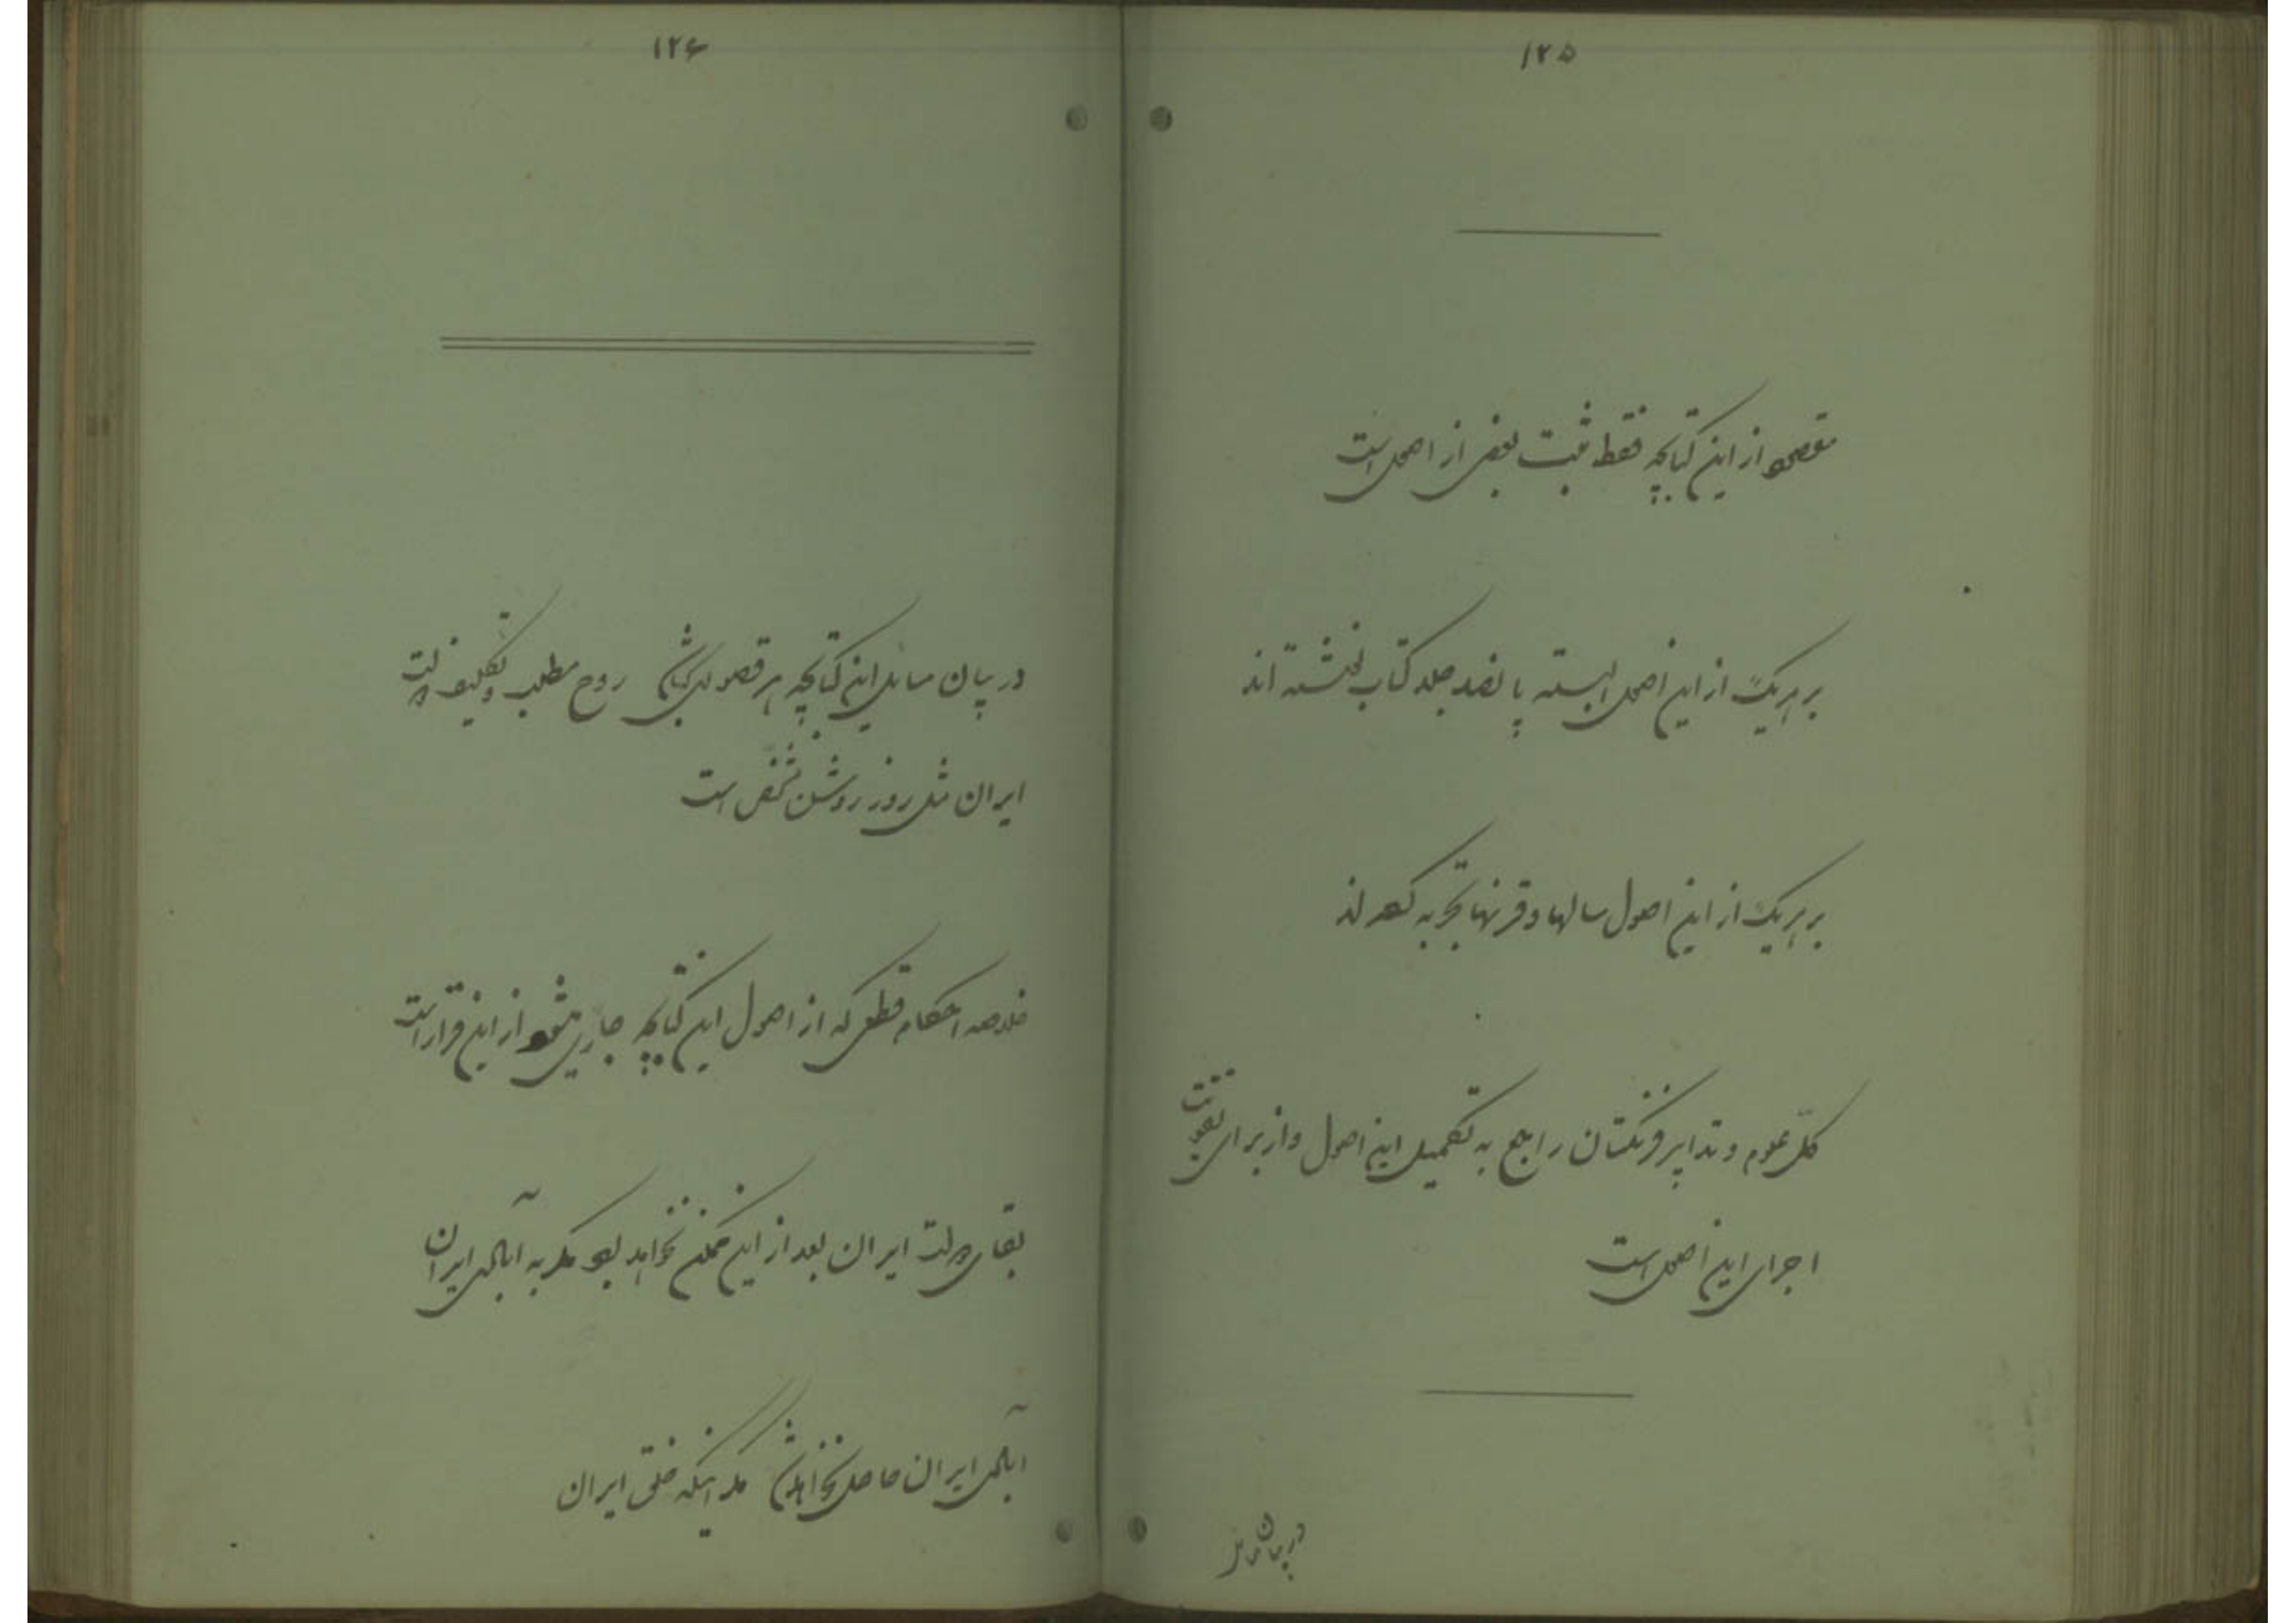 ۱۲۵
مقصود از این کتابچه فقط ثبت بعضی از اصول است
بر هر یک از این اصول البته پانصد جلد کتاب نوشته اند
بر هر یک از این اصول سالها و قرنها تجربه کرده اند
کل علوم و تدابیر فرنگستان راجع به تکمیل این اصول و از برای تقویت
اجرای این اصول است
در بیان مسایل
۱۲۶
در بیان مسایل این کتابچه هر قصوری باشد روح مطلب و تکلیف دولت
ایران مثل روز روشن مشخص است
خلاصه احکام قطعی که از اصول این کتابچه جاری میشود از این قرار است
بقای دولت ایران بعد از این ممکن نخواهد بود مگر به آبادی ایران
آبادی ایران حاصل نخواهد شد مگر اینکه خلق ایران